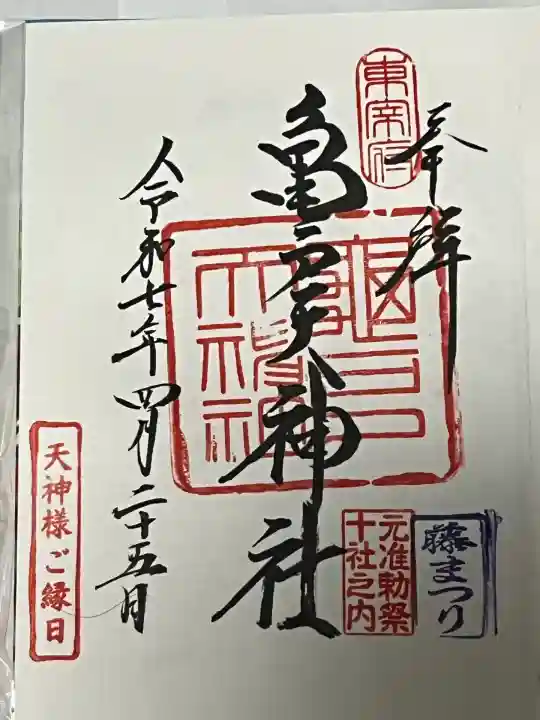 東宰府
奉拝
亀戸天神社
令和七年四月二十五日
天神様ご縁日
元准勅祭
十社之内
藤まつり